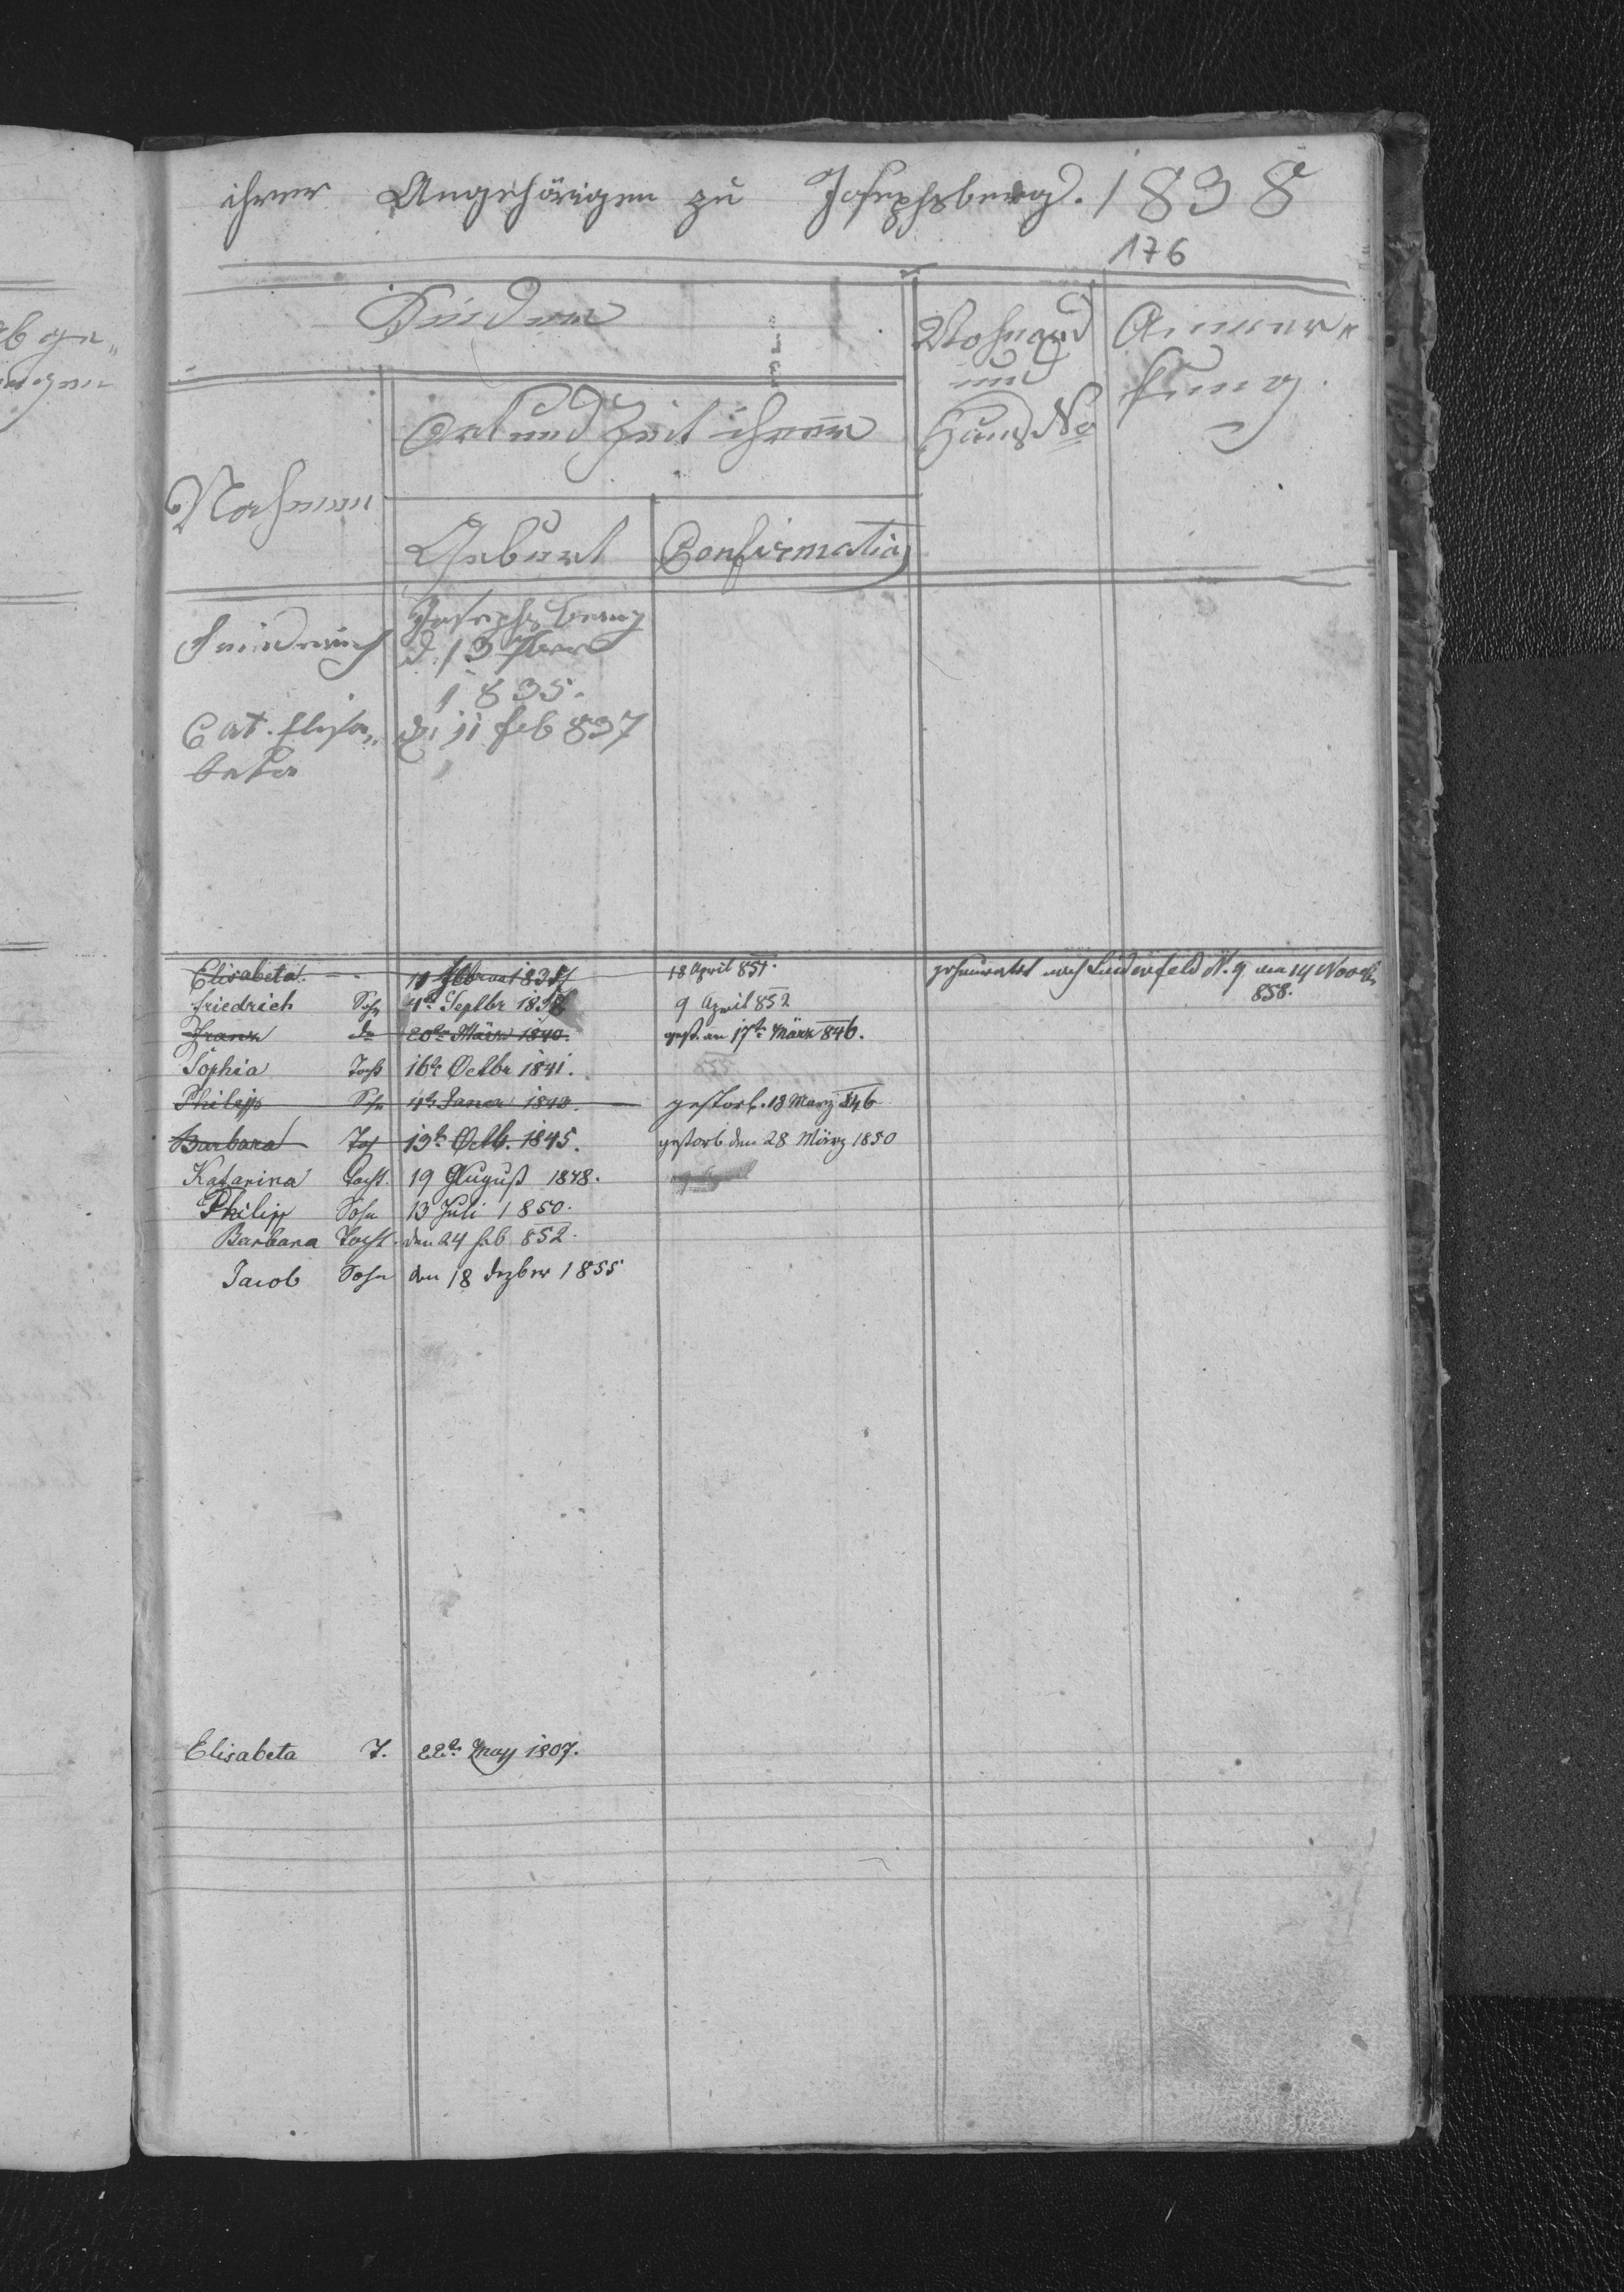 ihrer Angehörigen zu Josephsberg. 1838
176
Kinder
Wohnort
und
Haus No
Anmer„
kung.
Ort und Zeit ihrer
Nahmen
Geburt
Confirmatio
Friedrich
Josephsberg
d. 13
1835.
Cat. Elisa„
betha
d. 11 feb 837
Elisabeta. 11 Februar 18 18 April 851. geheurathet nach Lindenfeld N. 9 den 14 Novemb
858.
Friedrich Sohn 4te Septbr 183 9 April 852
Franz do 20te März 1840. gest. am 17te März 846.
Sophia Toch 16te Octbr 1841.
Philipp Sohn 4te Januar 1843. gestorb. 13 März 846
Barbara To 19te Octb. 1845. gestorb den 28 März 1850
Katarina Toch. 19 August 1848.
Philipp Sohn 13 Juli 1850.
Barbara Toch. den 24 feb 852.
Jacob Sohn den 18 dezber 1855
Elisabeta T. 22te May 1807.